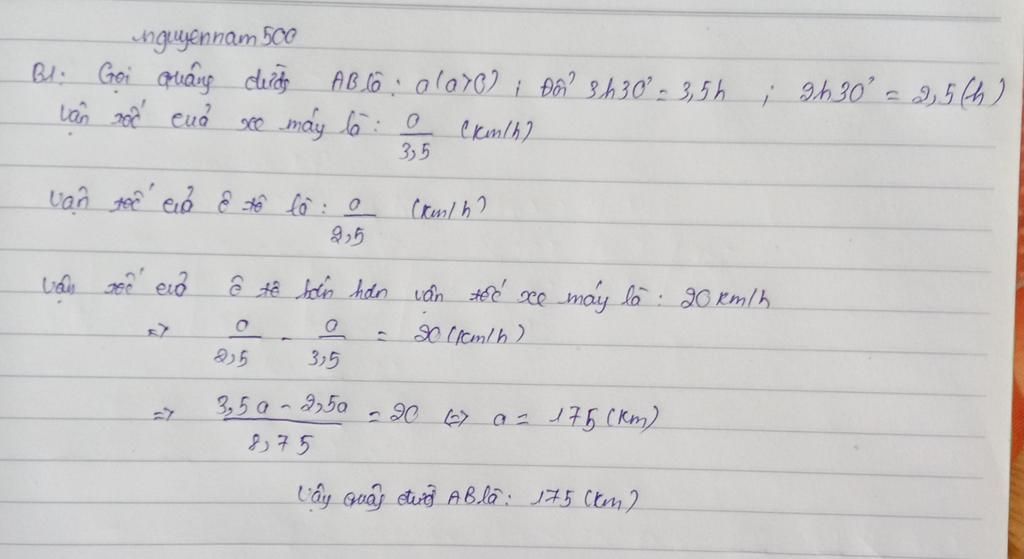 nguyennam500
B1: Gọi quãng đường AB là: a (a>0) ; Đổi 3h30' = 3,5h ; 2h30' = 2,5(h)
Vận tốc của xe máy là: a/3,5 (km/h)
Vận tốc của ô tô là: a/2,5 (km/h)
Vận tốc của ô tô hơn hơn vận tốc xe máy là: 20 km/h
=> a/2,5 - a/3,5 = 20 (km/h)
=> (3,5a - 2,5a)/8,75 = 20 <=> a = 175 (km)
Vậy quãng đường AB là: 175 (km)